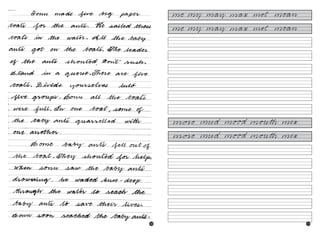 Sonu made five big paper
boats for the ants. He sailed those
boats in the water. All the baby
ants got on the boats. The leader
of the ants shouted Don't rush.
Stand in a queue. There are five
boats. Divide yourselves into
five groups. Soon all the boats
were full. In one boat, some of
the baby ants quarrelled with
one another.
Some baby ants fell out of
the boat. They shouted for help.
When sonu saw the baby ants
drowning he waded knee-deep
through the water to reach the
baby ants to save their lives.
Sonu soon reached the baby ants.
me my may max met moan
me my may max met moan
more mud mood mouth mix
more mud mood mouth mix